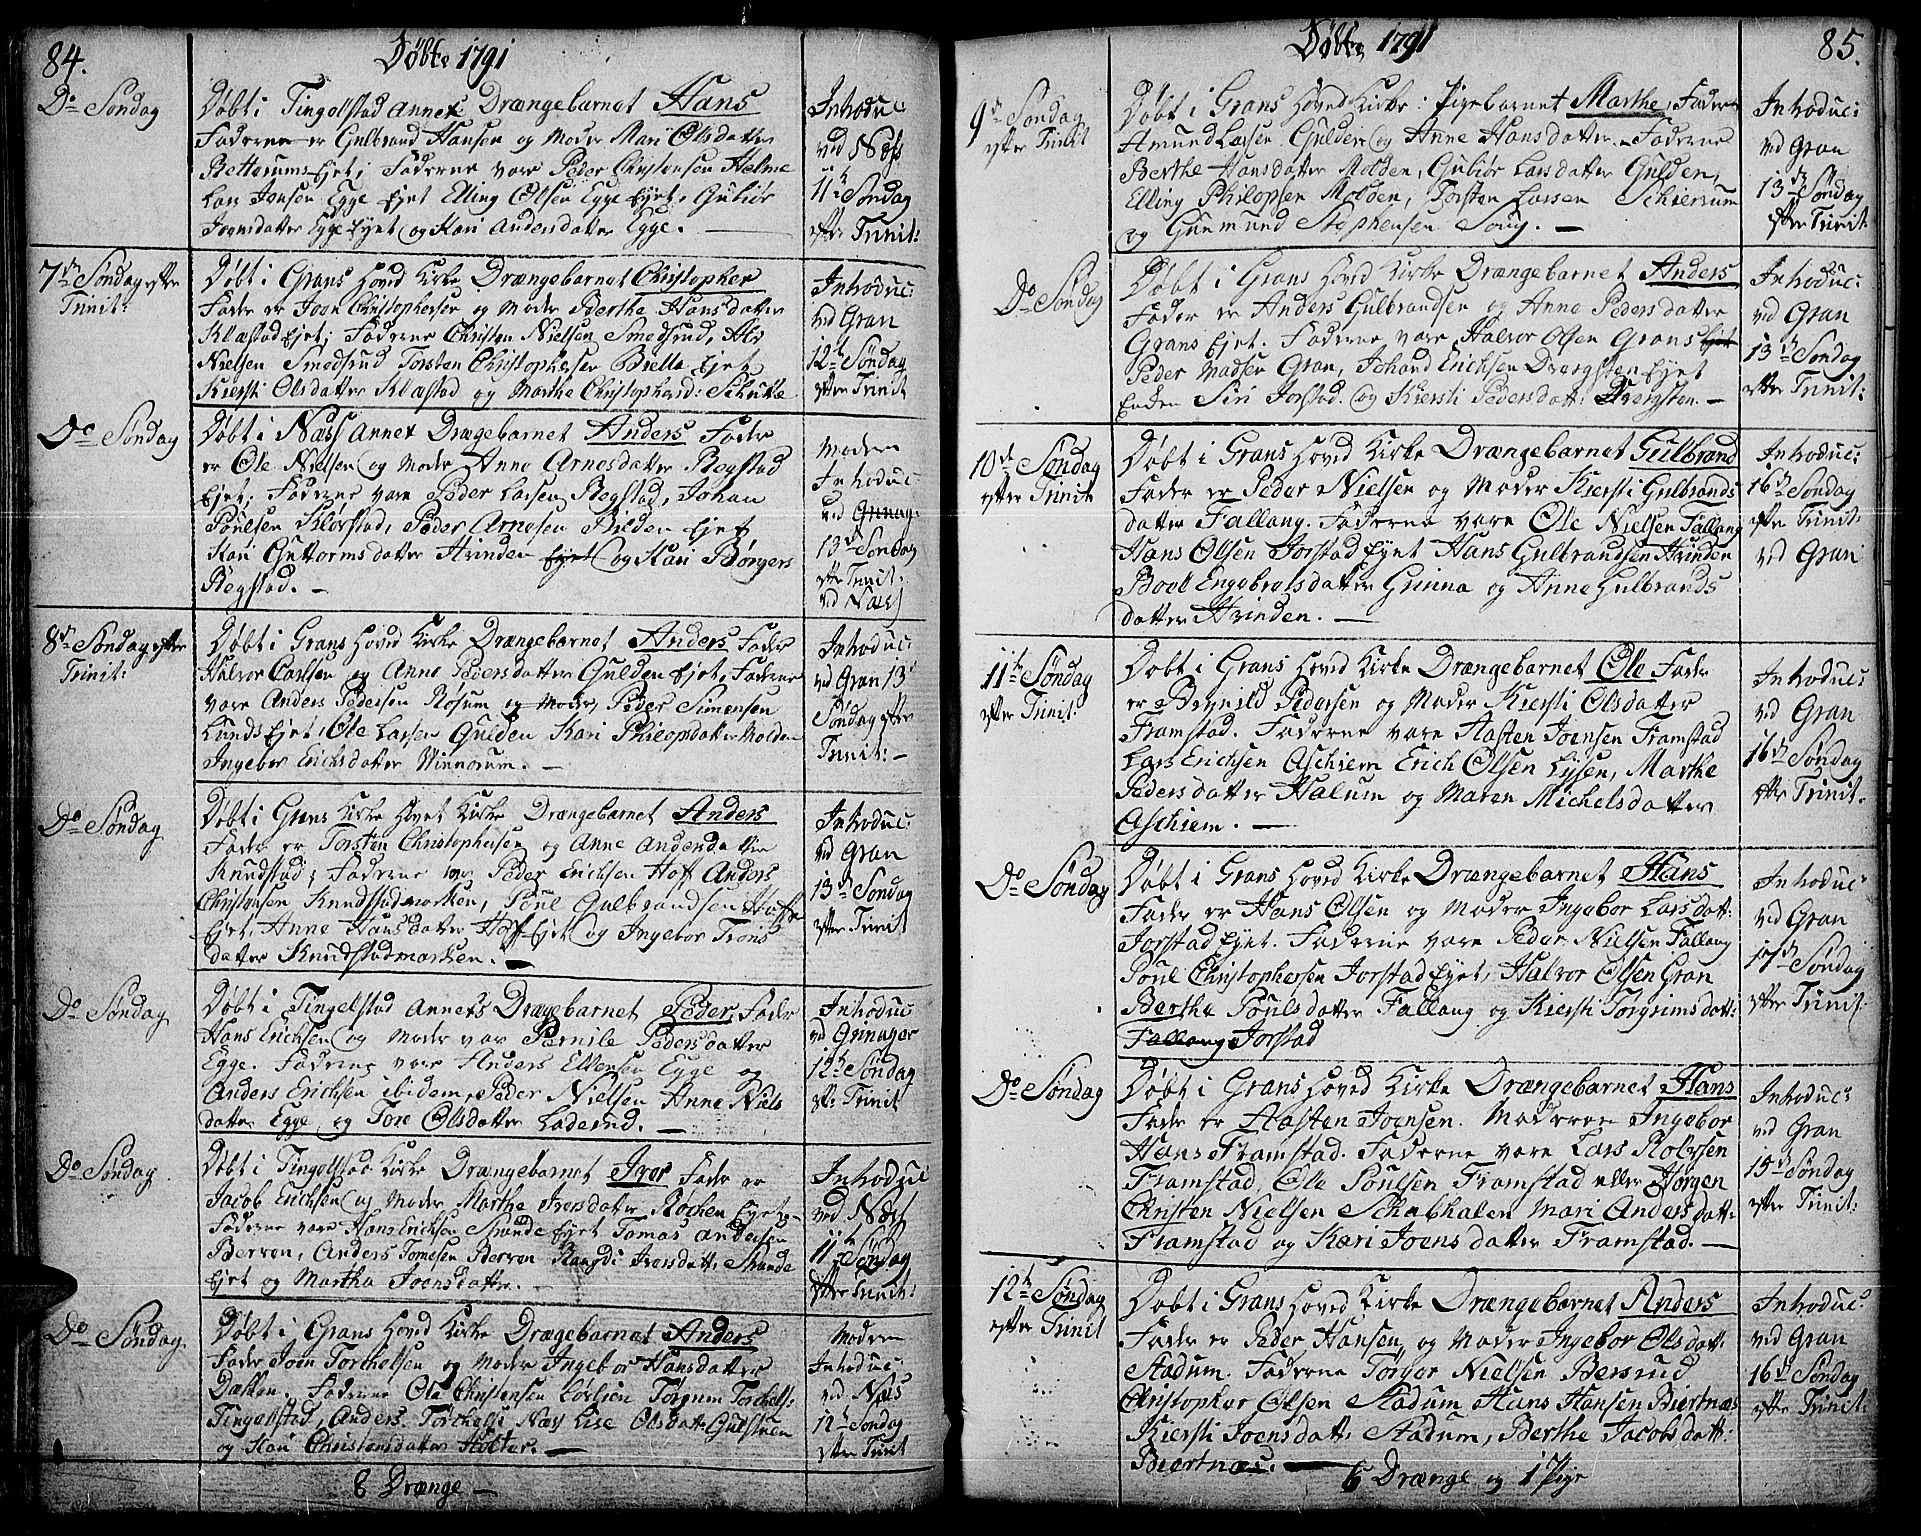 84.
Döbte 1791
Do Söndag
Döbt i Tingelstad Annex Drængebarnet Hans
Faderne er Gulbrand Hansen og Moder Mari Olsdatter
Fadderne vare Peder Christensen Helme
Lars Jensen Egge Ejet Elling Olsen Egge Ejet, Guliör
Joensdatter Egge Ejet og Kari Andersdatter Egge.
Introduc
ved Næss
11te Söndag
efter Trinit:
7de Söndag efter
Trinit:
Döbt i Grans Hoved Kirke Drængebarnet Christopher
Fader er Joen Christophersen og Moder Berthe Hansdatter
Klæstad Ejet; Fadderne Christen Nielsen Smedsrud, Ole
Nielsen Smedsrud Torsten Christophersen Bielle Ejet
Kiersti Olsdatter Klæstad og Marthe Christophersd: Schutte
Introduc:
ved Gran
12te Söndag
efter Trinit
Do Söndag
Döbt i Næss Annex Drægebarnet Anders Fader
er Ole Nielsen og Moder Anne Arnesdatter Regstad
Ejet; Fadderne vare Peder Larsen Regstad, Johan
Poulsen Klörstad, Peder Arnesen Bilden Ejet
Kari Guttormsdatter Hvinden Ejet og Kari Börgers
Regstad.
Moderen
Introduc
ved Grinag.
13de Söndag
efter Trinit:
ved Næss
8de Söndag efter
Trinit:
Döbt i Grans Hoved Kirke Drængebarnet Anders Fader
Halvor Carlsen og Anne Pedersdatter Gulden Ejet, Fadderne
vare Anders Pedersen Röisum og Moder, Peder Simensen
Lunds Ejet, Ole Larsen Gulden Kari Phileopsdatter Molden
Ingebor Erichsdatter Vinnorum.
Introduc:
ved Gran 13de
Söndag efter
Trinit:
Do Söndag
Döbt i Grans Kirke Hoved Kirke Drængebarnet Anders
Fader er Torsten Christophersen og Anne Andersdatter
Knudstad; Fadderne var Peder Erichsen Hoff Anders
Christensen Knudstadmarken, Poul Gulbrandsen Hoff
Ejet, Anne Hansdatter Hoff Ejet og Ingebor Trons
datter Knudstadmarken.
Introduc:
ved Gran
13de Söndag
efter Trinit
Do Söndag
Döbt i Tingelstad Annex Drængebarnet Peder, Fader
Hans Erichsen og Moder var Pernile Pedersdatter
Egge. Fadderne vare Anders Ellensen Egge og
Anders Erichsen ibidem, Peder Nielsen Anne Niels
datter Egge og Tore Olsdatter Laderud.
Introduc
ved Grinager
12te Söndag
eft: Trinit
Do Söndag
Döbt i Tingelstad Kirke Drængebarnet Iver Fader er
Jacob Erichsen og Moder Marthe Iversdatter Röchen Ejet
Fadderne vare Hans Erichsen Skande Ejet Tomas Andersen
Berren, Anders Tomesen Berren Rangdi Iversdatt: Skande
Ejet og Martha Joensdatter.
Introduc
ved Næss
11te Söndag
efter Trinit:
Do Söndag
Döbt i Grans Hoved Kirke Drægebarnet Anders
Fader Joen Torchelsen og Moder Ingebor Hansdatter
Dækken. Fadderne Ole Christensen Torchels:
Tingelstad, Anders Torchelse Næss Lise Olsdatt:
og Kari Christensdatter Holter.
Moderen
Introduc:
ved Næs
12te Söndag
efter Trinit
8 Drænge
Döbte 1791
85.
9de Söndag
efter Trinit
Döbt i Grans Hoved Kirke: Pigebarnet Marthe, Fader
Amund Larsen Gulden og Anne Hansdatter. Fadderne
Berthe Hansdatter Molden, Guliör Larsdatter Gulden,
Elling Philopsen Molden, Torsten Larsen Schierrum
og Gunmund Stephensen Soug.
Introduc:
ved Gran
13de Söndag
efter Trinit:
Do Söndag
Döbt i Grans Hoved Kirke Drængebarnet Anders
Fader er Anders Gulbrandsen og Anne Pedersdatter
Grans Ejet. Fadderne vare Halvor Olsen Grans Ejet
Peder Madsen Gran, Johand Erichsen Dvergsten Ejet
Enken Siri Jorstad og Kiersti Pedersdatt: Dvergsten.
Introduc:
ved Gran
13de Söndag
efter Trinit:
10de Söndag
efter Trinit
Döbt i Grans Hoved Kirke Drængebarnet Gulbrand
Fader er Peder Nielsen og Moder Kiersti Gulbrands
datter Fallang. Fadderne vare Ole Nielsen Fallang
Hans Olsen Jorstad Ejet Hans Gulbrandsen Hvinden
Boel Engebretsdatter Grinna og Anne Gulbrands
datter Hvinden.
Introduc:
16de Söndag
efter Trinit:
ved Gran
11te Söndag
efter Trinit:
Döbt i Grans Hoved Kirke Drængebarnet Ole Fader
er Brynild Pedersen og Moder Kiersti Olsdatter
Framstad. Fadderne vare Hasten Joensen Framstad
Lars Erichsen Aschiem Erich Olsen Lysen, Marthe
Pedersdatter Halum og Maren Michelsdatter
Aschiem.
Introduc:
ved Gran
16de Söndag
efter Trinit.
Do Söndag
Döbt i Grans Hoved Kirke Drængebarnet Hans
Fader er Hans Olsen og Moder Ingebor Larsdatt:
Jorstad Ejet. Fadderne vare Peder Nielsen Fallang
Poul Christophersen Jorstad Ejet, Halvor Olsen Gran
Berthe Poulsdatter Fallang og Kiersti Torgrimsdatt:
Fallang Jorstad
Introduc:
ved Gran
17de Söndag
efter Trinit:
Do Söndag
Döbt i Grans Hoved Kirke Drængebarnet Hans
Fader er Hasten Joensen. Moderen Ingebor
Hans Framstad. Fadderne vare Lars Rolvsen
Framstad, Ole Poulsen Framstad eller Horgen
Christen Nielsen Schabhalen Mari Andersdatt:
Framstad og Kari Joensdatter Framstad.
Introduc:
ved Gran
15de Söndag
efter Trinit:
12te Söndag
efter Trinit
Döbt i Grans Hoved Kirke Drængebarnet Anders
Fader er Peder Hansen og Moder Ingebor Olsdatt:
Stadum. Fadderne Torger Nielsen Bersrud
Christopher Olsen Stadum Hans Hansen Biertnæs
Kiersti Joensdatter Stadum, Berthe Jacobsdatt:
Biertnæs.
Introduc:
ved Gran
16de Söndag
efter Trinit:
6 Drænge og 1 Pige